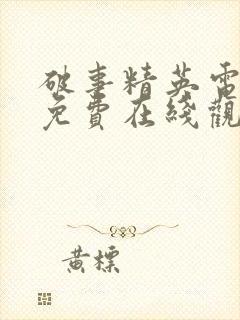 破事精英電
免費在綫觀
黃標